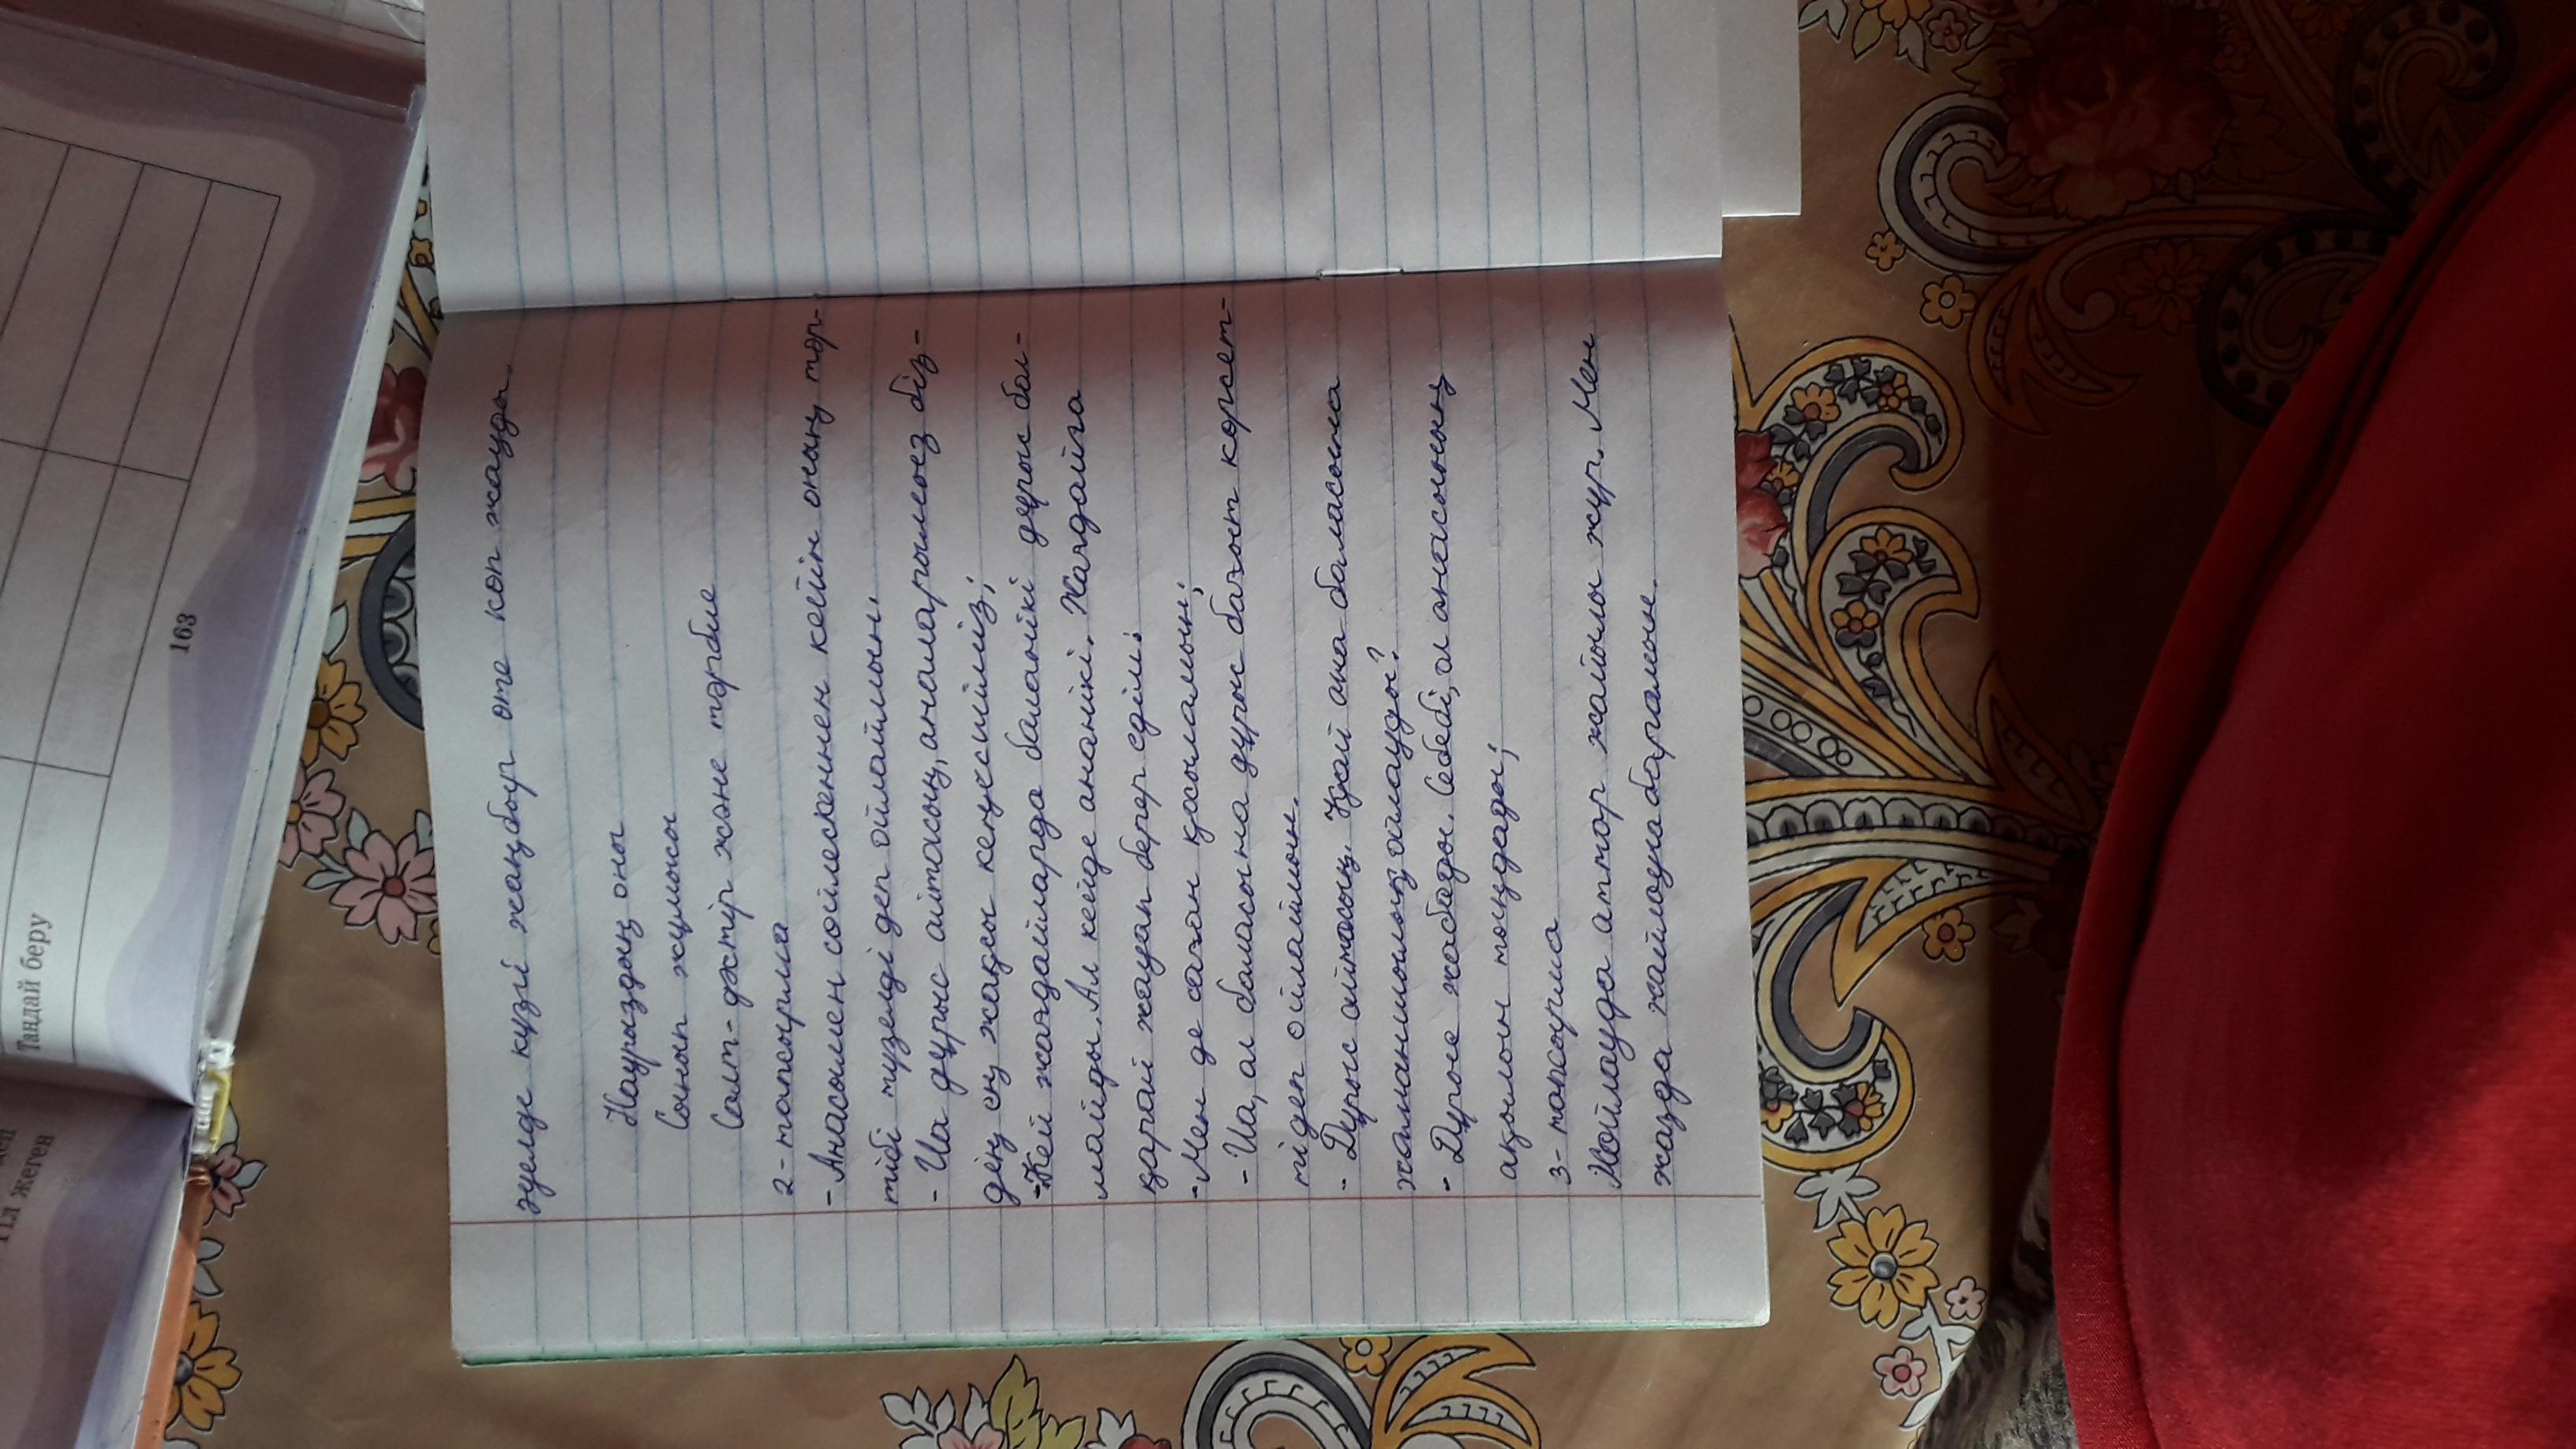 әуелде күзгі жаңбыр өте көп жауды.
Наурыздың оны
Сынып жұмысы
Салт-дәстүр және тәрбие
2-тапсырма
- Анасымен сөйлескеннен кейін оның тәр-
тібі түзелді деп ойлаймын.
- Иа дұрыс айтасың, аналарымыз біз-
дің ең жақсы кеңесшіміз;
- Кей жағдайларда баланікі дұрыс бол-
майды. Ал кейде ананікі. Жағдайға
қарай жауап берер едім.
- Мен де саған қосыламын;
- Иа, ол баласына дұрыс бағыт көрсет-
ті деп ойлаймын.
- Дұрыс айтасың. Қай ана баласына
жамандық ойлауды?
- Дұрыс жасады. Себебі, ол анасының
ақылын тыңдады;
3-тапсырма
Жайлауда аттар жайылып жүр. Мен
жазда жайлауға барамын.
163
Таңдай беру
Тіл жеген